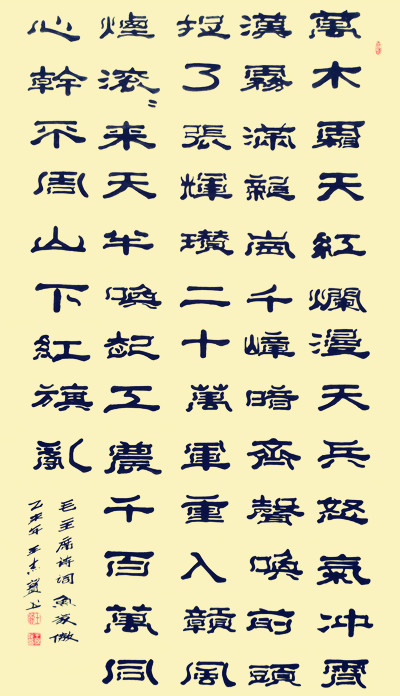 萬木霜天紅爛漫天兵怒氣冲霄
漢霧滿龍崗千嶂暗齊聲喚前頭
捉了張輝瓚二十萬軍重入贛風
煙滾〻來天半喚起工農千百萬同
心幹不周山下紅旗亂
毛主席诗词魚家傲
乙未年王